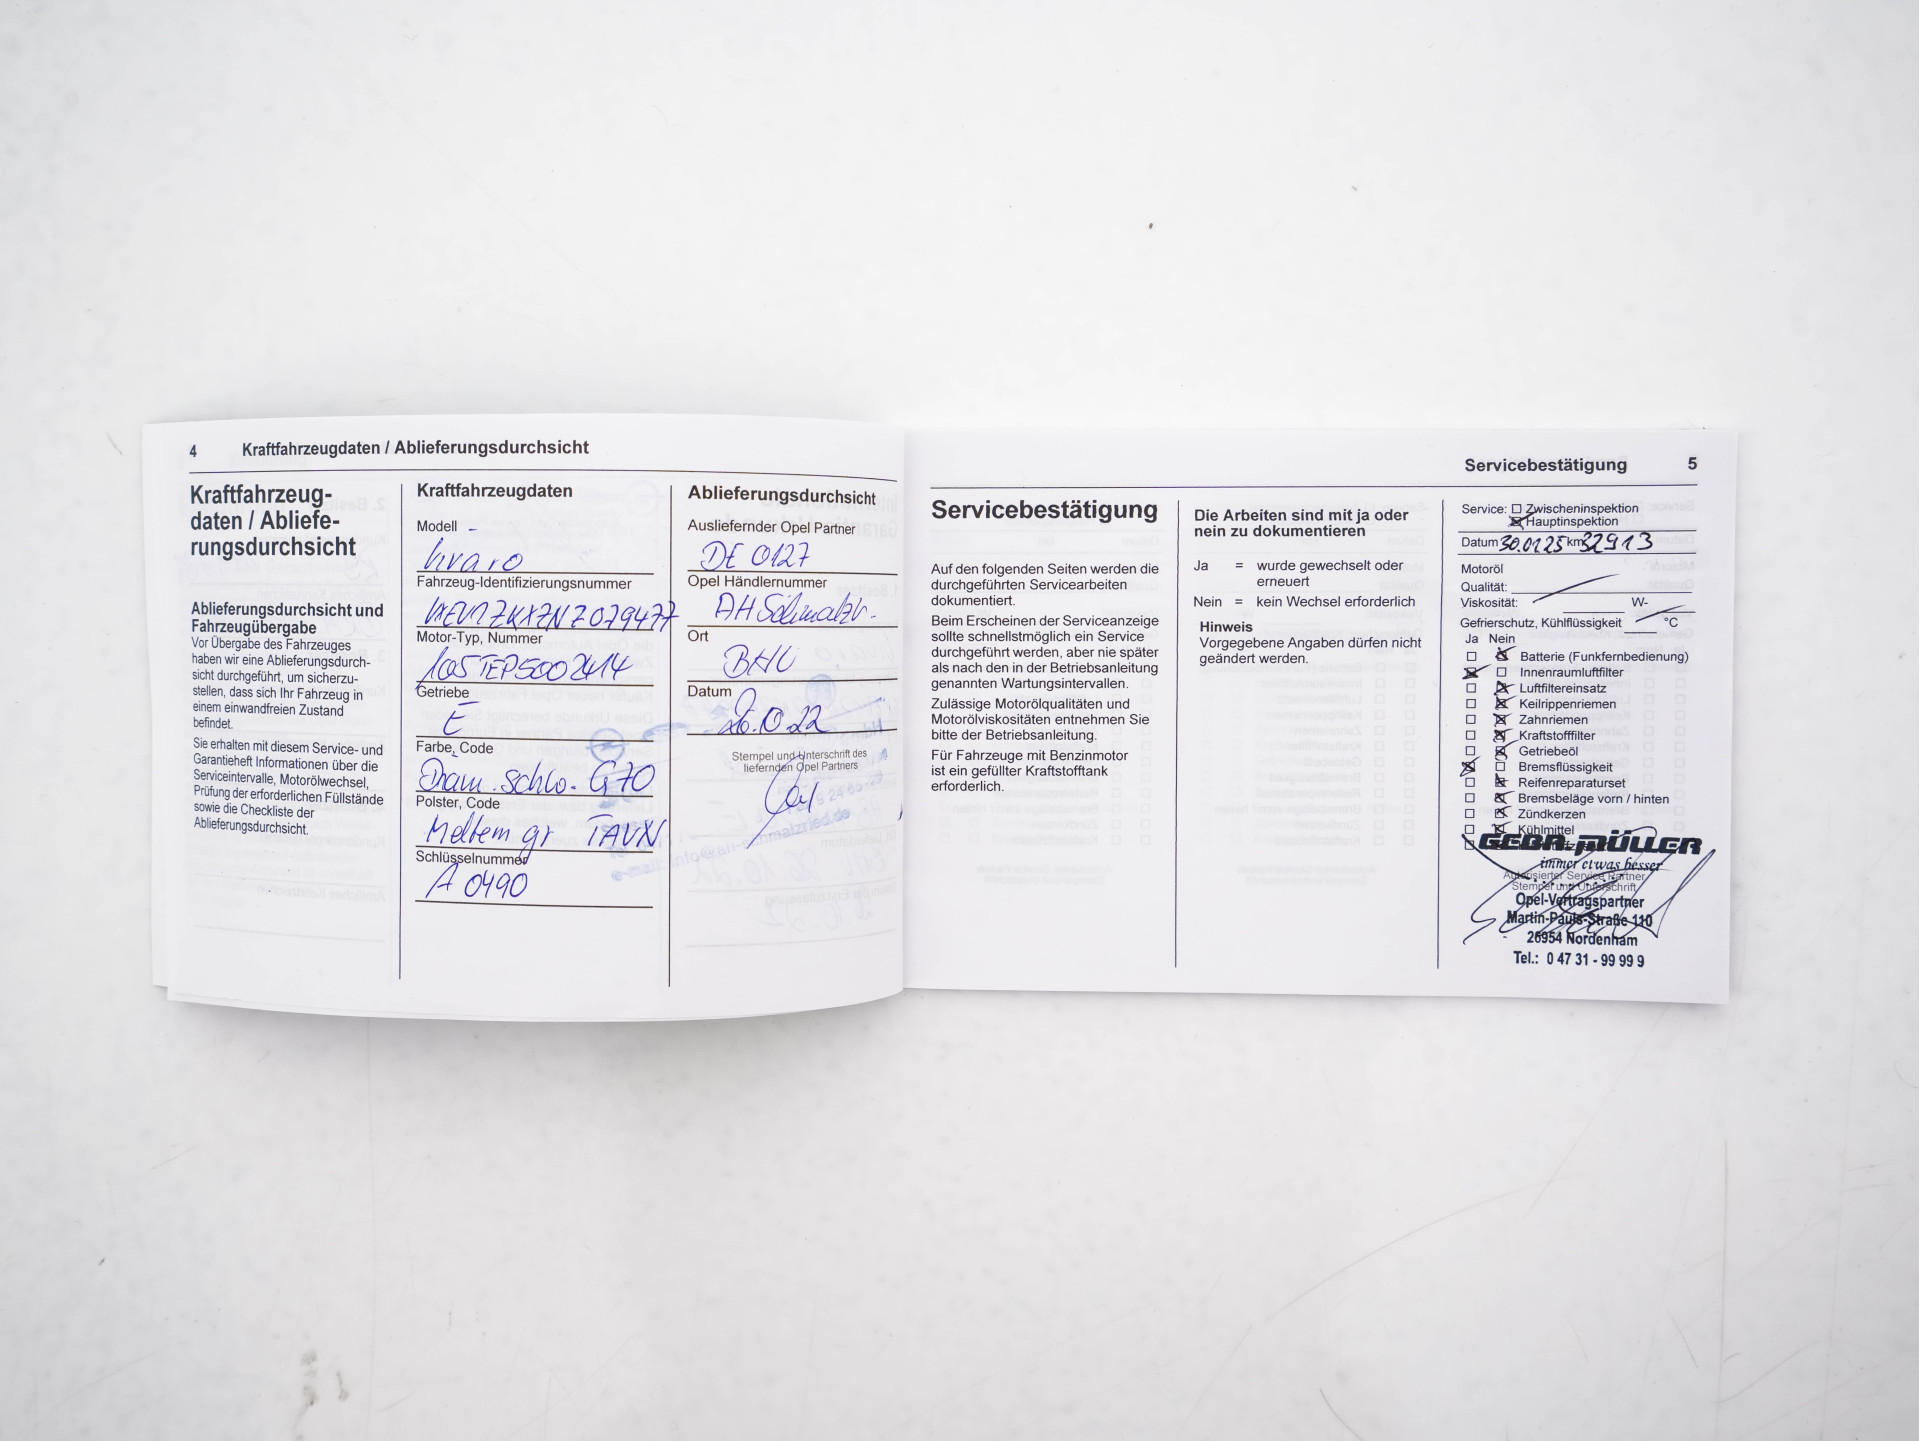 4 Kraftfahrzeugdaten / Ablieferungsdurchsicht
Kraftfahrzeug-
daten / Abliefe-
rungsdurchsicht
Ablieferungsdurchsicht und
Fahrzeugübergabe
Vor Übergabe des Fahrzeuges
haben wir eine Ablieferungsdurch-
sicht durchgeführt, um sicherzu-
stellen, dass sich Ihr Fahrzeug in
einem einwandfreien Zustand
befindet.
Sie erhalten mit diesem Service- und
Garantieheft Informationen über die
Serviceintervalle, Motorölwechsel,
Prüfung der erforderlichen Füllstände
sowie die Checkliste der
Ablieferungsdurchsicht.
Kraftfahrzeugdaten
Modell -
Vivaro
Fahrzeug-Identifizierungsnummer
Motor-Typ, Nummer
Getriebe
E
Farbe, Code
Diam. schw. G70
Polster, Code
Meltem gr
Schlüsselnummer
A 0490
Ablieferungsdurchsicht
Ausliefernder Opel Partner
DE 0127
Opel Händlernummer
AH
Ort
Datum
26.10.22
Stempel und Unterschrift des
liefernden Opel Partners
Servicebestätigung 5
Servicebestätigung
Auf den folgenden Seiten werden die
durchgeführten Servicearbeiten
dokumentiert.
Beim Erscheinen der Serviceanzeige
sollte schnellstmöglich ein Service
durchgeführt werden, aber nie später
als nach den in der Betriebsanleitung
genannten Wartungsintervallen.
Zulässige Motorölqualitäten und
Motorölviskositäten entnehmen Sie
bitte der Betriebsanleitung.
Für Fahrzeuge mit Benzinmotor
ist ein gefüllter Kraftstofftank
erforderlich.
Die Arbeiten sind mit ja oder
nein zu dokumentieren
Ja = wurde gewechselt oder
erneuert
Nein = kein Wechsel erforderlich
Hinweis
Vorgegebene Angaben dürfen nicht
geändert werden.
Service: Zwischeninspektion
Hauptinspektion
Datum 30.01.25 km 32913
Motoröl
Qualität:
Viskosität: W-
Gefrierschutz, Kühlflüssigkeit °C
Ja Nein
Batterie (Funkfernbedienung)
Innenraumluftfilter
Luftfiltereinsatz
Keilrippenriemen
Zahnriemen
Kraftstofffilter
Getriebeöl
Bremsflüssigkeit
Reifenreparaturset
Bremsbeläge vorn / hinten
Zündkerzen
Kühlmittel
GEBR. MÜLLER
immer etwas besser
Autorisierter Service Partner
Stempel und Unterschrift
Opel-Vertragspartner
Martin-Pauls-Straße 110
26954 Nordenham
Tel.: 0 47 31 - 99 99 9